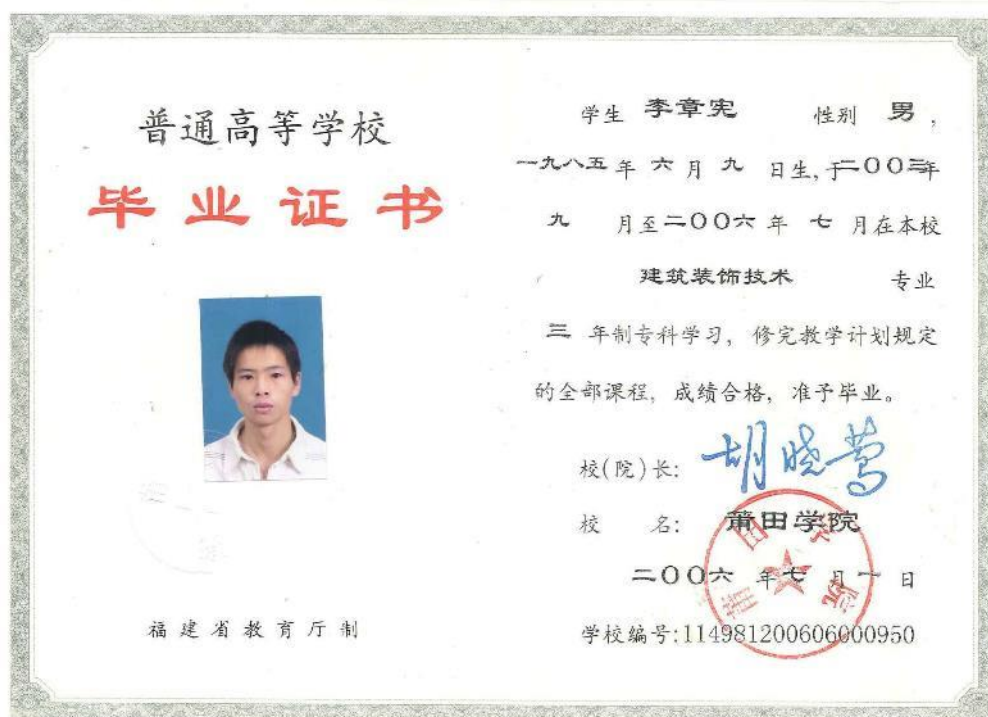 普通高等学校
毕业证书
福建省教育厅制
学生 李章宪 性别 男，
一九八五年 六月 九 日生，于二００三年
九 月至二００六年 七 月在本校
建筑装饰技术 专业
三 年制专科学习，修完教学计划规定
的全部课程，成绩合格，准予毕业。
校(院)长: 胡晓莺
校 名: 莆田学院
二００六 年七 月一 日
学校编号:114981200606000950
莆田学院